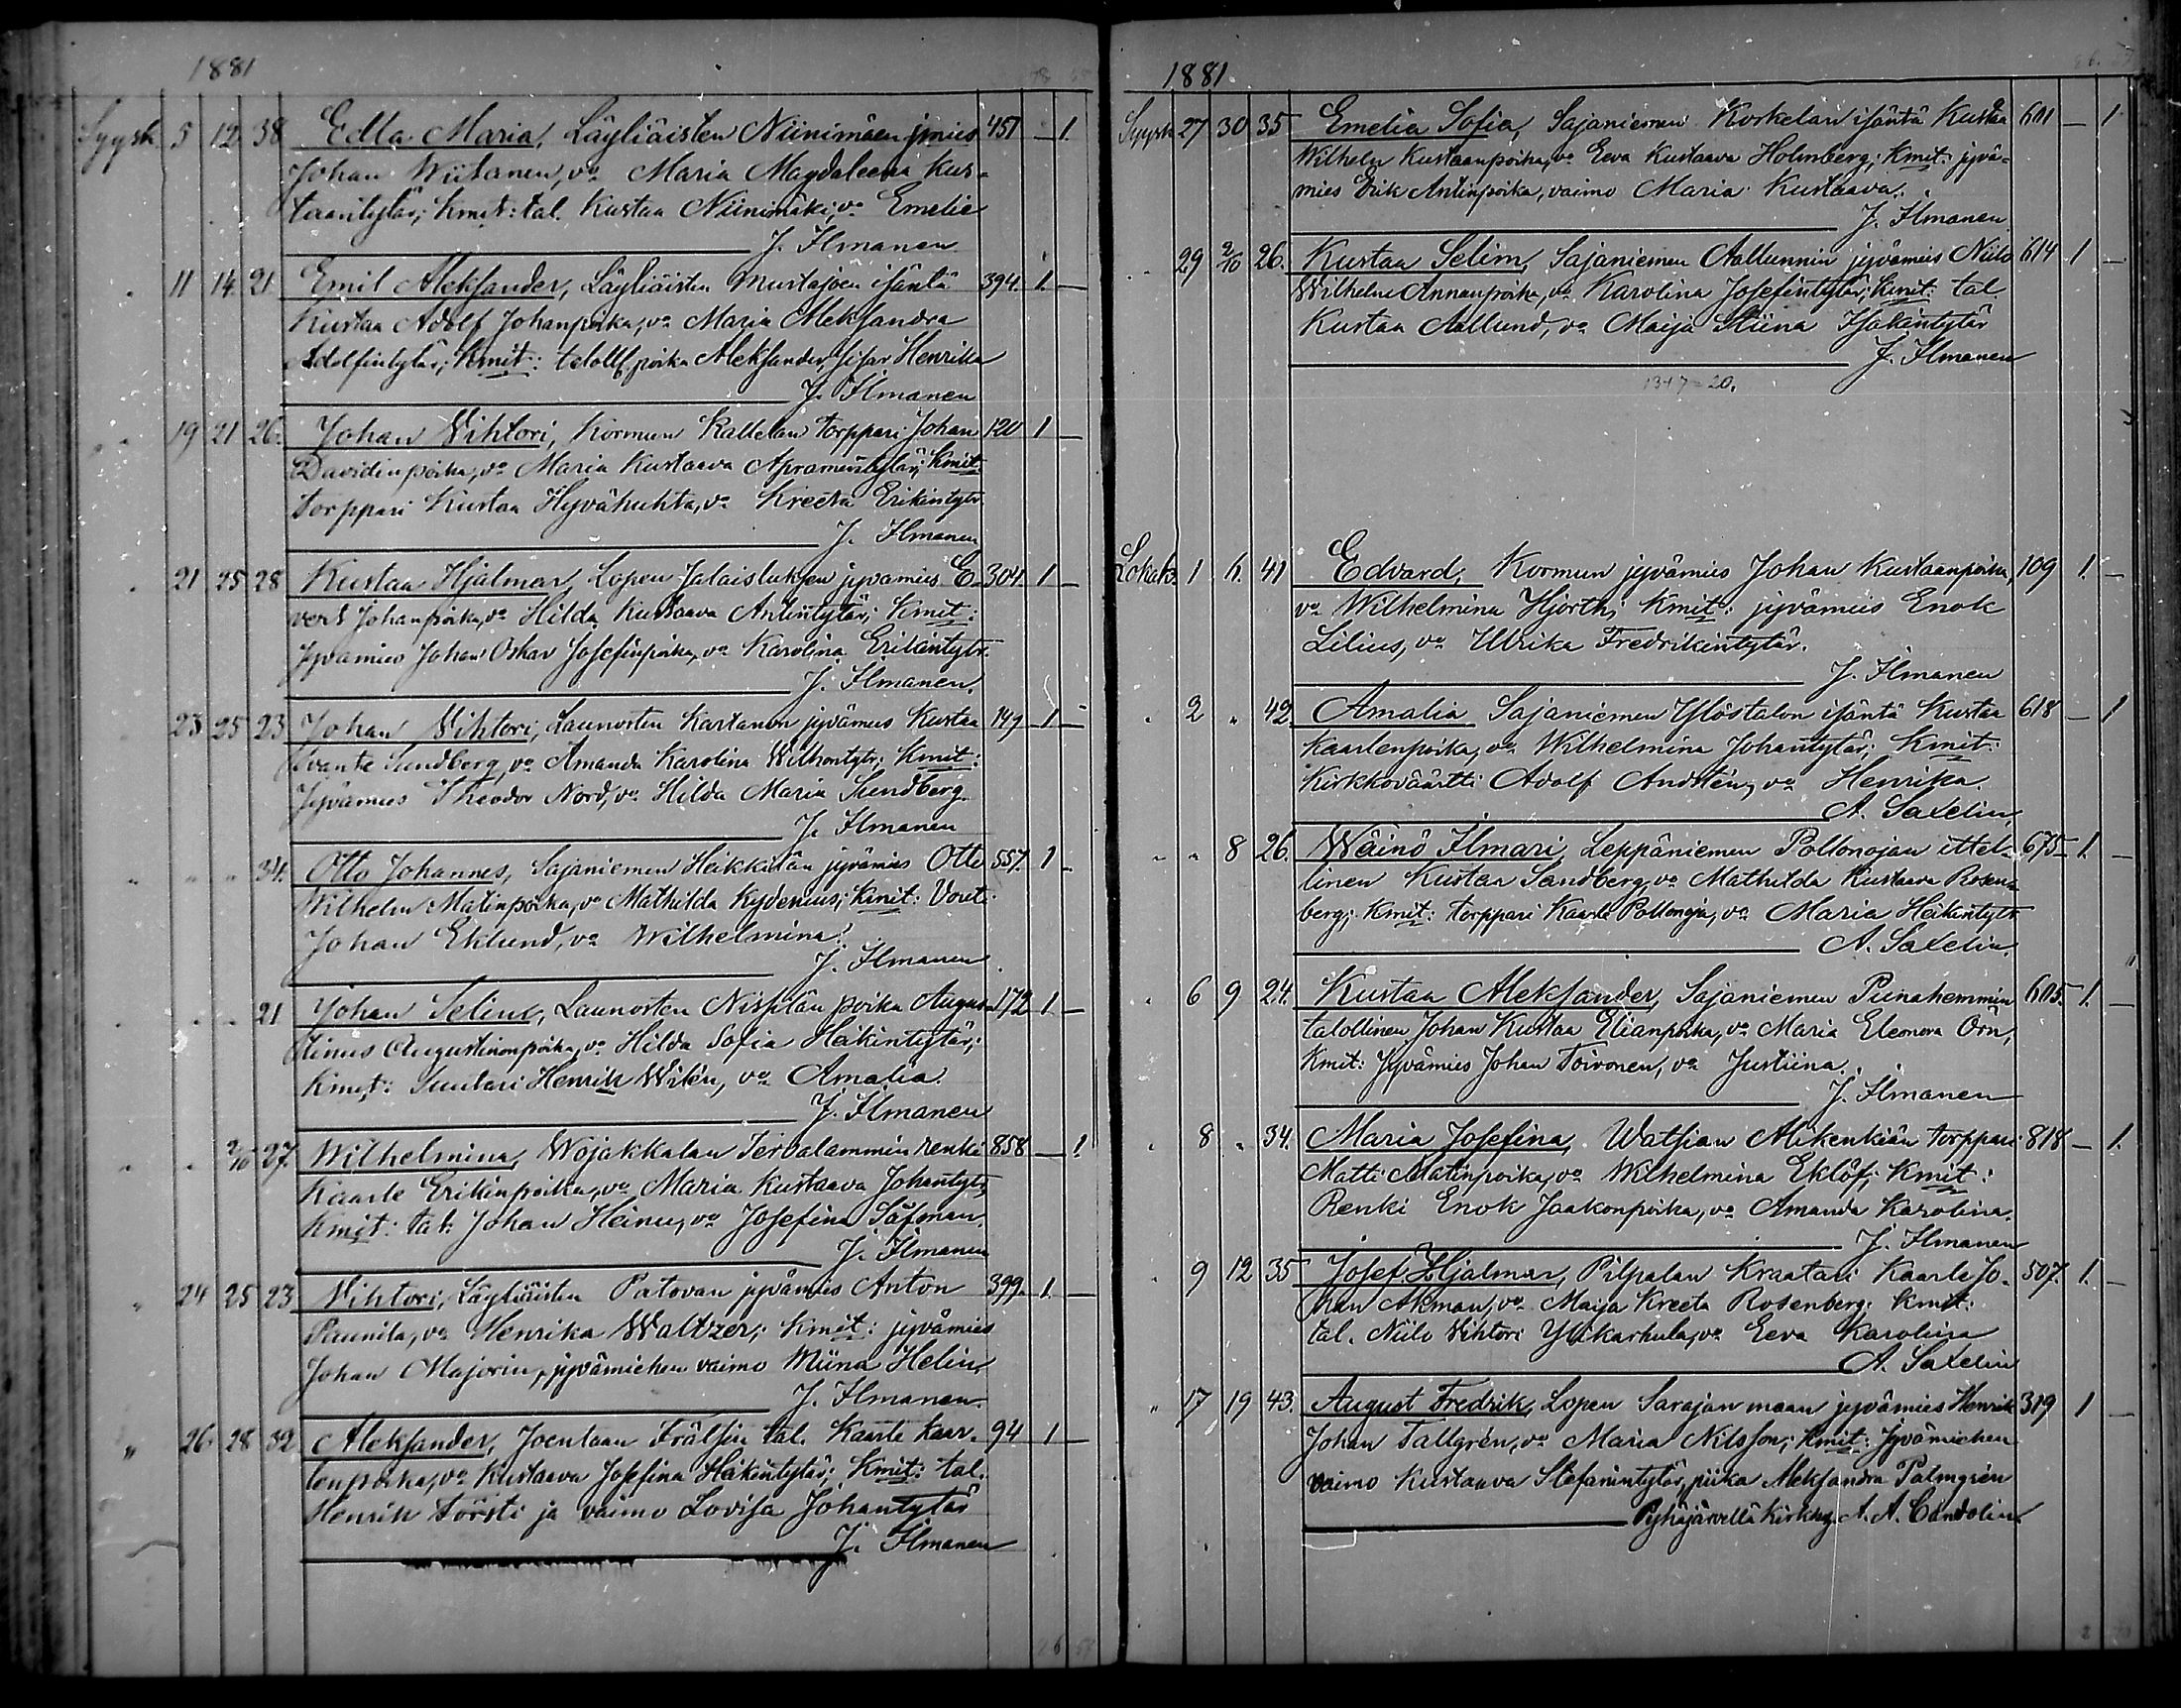 1881
Syysk 5 12 38 Edla Maria, Läyliäisten Niinimäen jmies 451 — 1.
Johan Wiitanen, vo Maria Magdaleena Kus-
taantytär; Kmit: tal. Kustaa Niinimäki, vo Emelie
J. Ilmanen
" 11 14 21. Emil Aleksander, Läyliäisten Mustajoen isäntä 394. 1. —
Kustaa Adolf Johanpoika, vo Maria Aleksandra
Adolfintytär; Kmit: taloll. poika Aleksander, sisar Henrika
J. Ilmanen
" 19 21 26. Johan Vihtori, Kormun Kallelan torppari Johan 120 1 —
Davidinpoika, vo Maria Kustaava Apramintytär; Kmit:
torppari Kustaa Hyvähuhta, vo Kreeta Erikintytr.
J. Ilmanen
" 21 25 28 Kustaa Hjalmar, Lopen Jalaistuksen jyvämies E- 304. 1 —
vert Johanpoika, vo Hilda Kustaava Antintytär; Kmit:
Jyvämies Johan Oskar Josefinpoika, vo Karolina Erikintytr.
J. Ilmanen.
23 25 23 Johan Vihtori, Launosten Kartanon jyvämies Kustaa 149 1 —
Evante Sundberg, vo Amanda Karolina Wilhontytr; Kmit:
Jyvämies Theodor Nord, vo Hilda Maria Sundberg.
J. Ilmanen
" " " 34. Otto Johannes, Sajaniemen Heikkilän jyvämies Otto 557. 1 —
Wilhelm Matinpoika, vo Mathilda Kydenius; Kmit: Vouti
Johan Eklund, vo Wilhelmina.
J. Ilmanen
" " " 21 Johan Selim, Launosten Nispilän poika Augus- 172 1 —
tinus Augustinonpoika, vo Hilda Sofia Heikintytär;
Kmit: Suutari Henrik Wilén, vo Amalia.
J. Ilmanen
" " 2/10 27. Wilhelmina, Wojakkalan Tervalammin renki 858 — 1.
Kaarle Erikinpoika, vo Maria Kustaava Johantytr,
Kmit: tal: Johan Heinu, vo Josefina Säfman.
J. Ilmanen
" 24 25 23 Vihtori, Läyliäisten Patovan jyvämies Anton 399. 1. —
Paunila, vo Henrika Waltzer; Kmit: jyvämies
Johan Majorin, jyvämiehen vaimo Miina Helin,
J. Ilmanen.
" 26. 28 32 Aleksander, Joentaan Frälsin tal. Kaarle Kaar- 94 1 —
lenpoika, vo Kustaava Josefina Heikintytär; Kmit: tal.
Henrik Törsti ja vaimo Lovisa Johantytär
J. Ilmanen
1881
Syysk 27 30 35 Emelia Sofia, Sajaniemen Korkelan isäntä Kustaa 601 — 1
Wilhelm Kustaanpoika, vo Eeva Kustaava Holmberg; Kmit: jyvä-
mies Erik Antinpoika, vaimo Maria Kustaava.
J. Ilmanen
" 29 2/10 26. Kustaa Selim, Sajaniemen Aallunnin jyvämies Niilo 614 1 —
Wilhelm Annanpoika, vo Karolina Josefintytär; Kmit: tal.
Kustaa Aallund, vo Maija Stiina Isakintytär
J. Ilmanen
13+7=20.
Lokak. 1 h. 41 Edvard, Kormun jyvämies Johan Kustaanpoika, 109 1. —
vo Wilhelmina Hjorth; Kmit: jyvämies Enok
Lilius, vo Ulrika Fredrikintytär.
J. Ilmanen
" 2 " 42 Amalia Sajaniemen Ylöstalon isäntä Kustaa 618 — 1
Kaarlenpoika, vo Wilhelmina Johantytär; Kmit:
Kirkkoväärtti Adolf Andstén, vo Henrika.
A. Saxelin
" " 8 26. Wäinö Ilmari, Leppäniemen Pollonojan ittel- 675 1. —
linen Kustaa Sandberg, vo Mathilda Kustaava Rosen-
berg; Kmit: torppari Kaarle Pollonoja, vo Maria Heikintytr
A. Saxelin.
" 6 9 24. Kustaa Aleksander, Sajaniemen Punahemmin 605. 1. —
talollinen Johan Kustaa Elianpoika, vo Maria Eleonora Örn,
Kmit: Jyvämies Johan Toivonen, vo Justiina.
J. Ilmanen
" 8 " 34. Maria Josefina, Watsian Alikenkiän torppari 818 — 1.
Matti Matinpoika, vo Wilhelmina Eklöf; Kmit:
Renki Enok Jaakonpoika, vo Amanda Karolina.
J. Ilmanen
" 9 12 35 Josef Hjalmar, Pilpalan Kraatari Kaarle Jo- 507. 1. —
han Akman, vo Maija Kreeta Rosenberg; Kmit:
tal. Niilo Vihtori Ylikarhula, vo Eeva Karolina
A. Saxelin
" 17 19 43. August Fredrik, Lopen Sarajan maan jyvämies Henrik 319 1 —
Johan Tallgrén, vo Maria Nilsson; Kmit: Jyvämiehen
vaimo Kustaava Stefanintytär, piika Aleksandra Palmgrén
Pyhäjärvellä Kirkhrr. A. A. Candolin